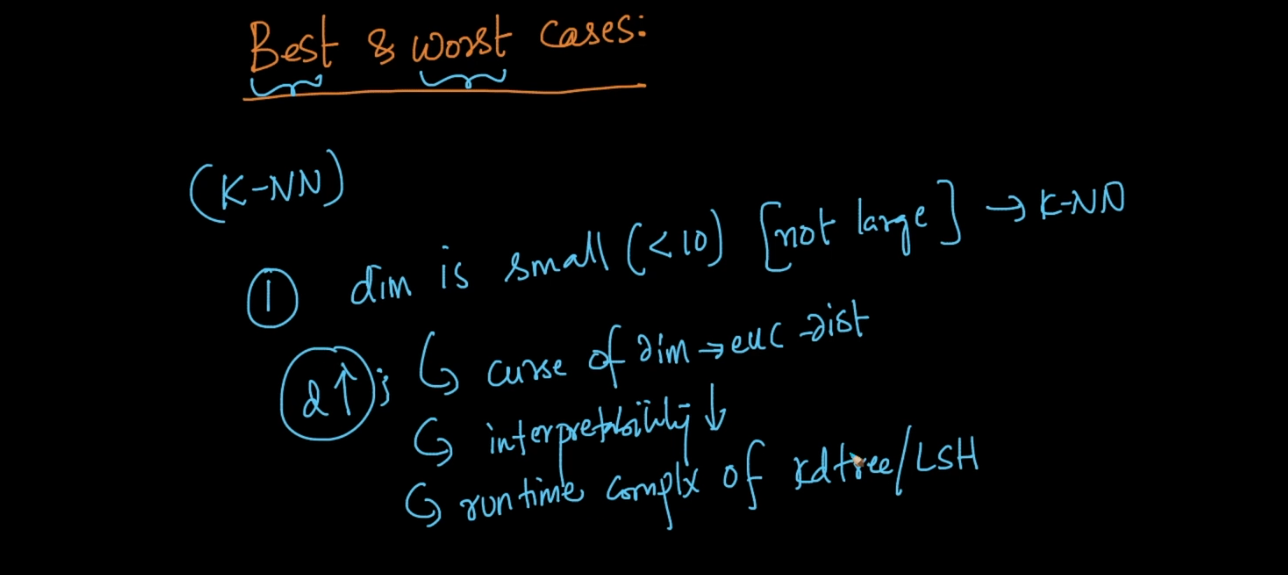 Best & worst cases:
(K-NN)
① dim is small (<10) [not large] → K-NN
d↑; ↳ curse of dim → euc-dist
↳ interpretability ↓
↳ runtime complx of kdtree/LSH